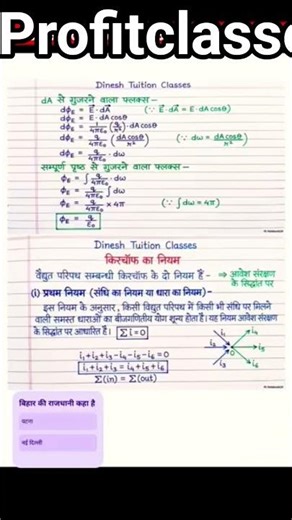 Profitclasse
Dinesh Tuition Classes
dA से गुजरने वाला फ्लक्स –
dΦE = E⃗·dA⃗ (∵ E⃗·dA⃗ = E·dA cosθ)
dΦE = E·dA cosθ
dΦE = 1/4πε₀ (q/r²)·dA cosθ
dΦE = q/4πε₀ (dA cosθ/r²) (∵ dω = dA cosθ/r²)
dΦE = q/4πε₀ · dω
सम्पूर्ण पृष्ठ से गुजरने वाला फ्लक्स –
ΦE = ∫ q/4πε₀ · dω
ΦE = q/4πε₀ ∫ dω
ΦE = q/4πε₀ × 4π (∵ ∫dω = 4π)
ΦE = q/ε₀
Dinesh Tuition Classes
किरचॉफ का नियम
वैद्युत परिपथ सम्बन्धी किरचॉफ के दो नियम हैं - ⇒ आवेश संरक्षण के सिद्धांत पर
(i) प्रथम नियम (संधि का नियम या धारा का नियम) -
इस नियम के अनुसार, किसी विद्युत परिपथ में किसी भी संधि पर मिलने
वाली समस्त धाराओं का बीजगणितीय योग शून्य होता है। यह नियम आवेश संरक्षण
के सिद्धांत पर आधारित है। Σi=0
i₁+i₂+i₃-i₄-i₅-i₆=0
i₁+i₂+i₃ = i₄+i₅+i₆
Σ(in) = Σ(out)
i₁ i₂ i₃ O i₄ i₅ i₆
बिहार की राजधानी कहा है
पटना
नई दिल्ली